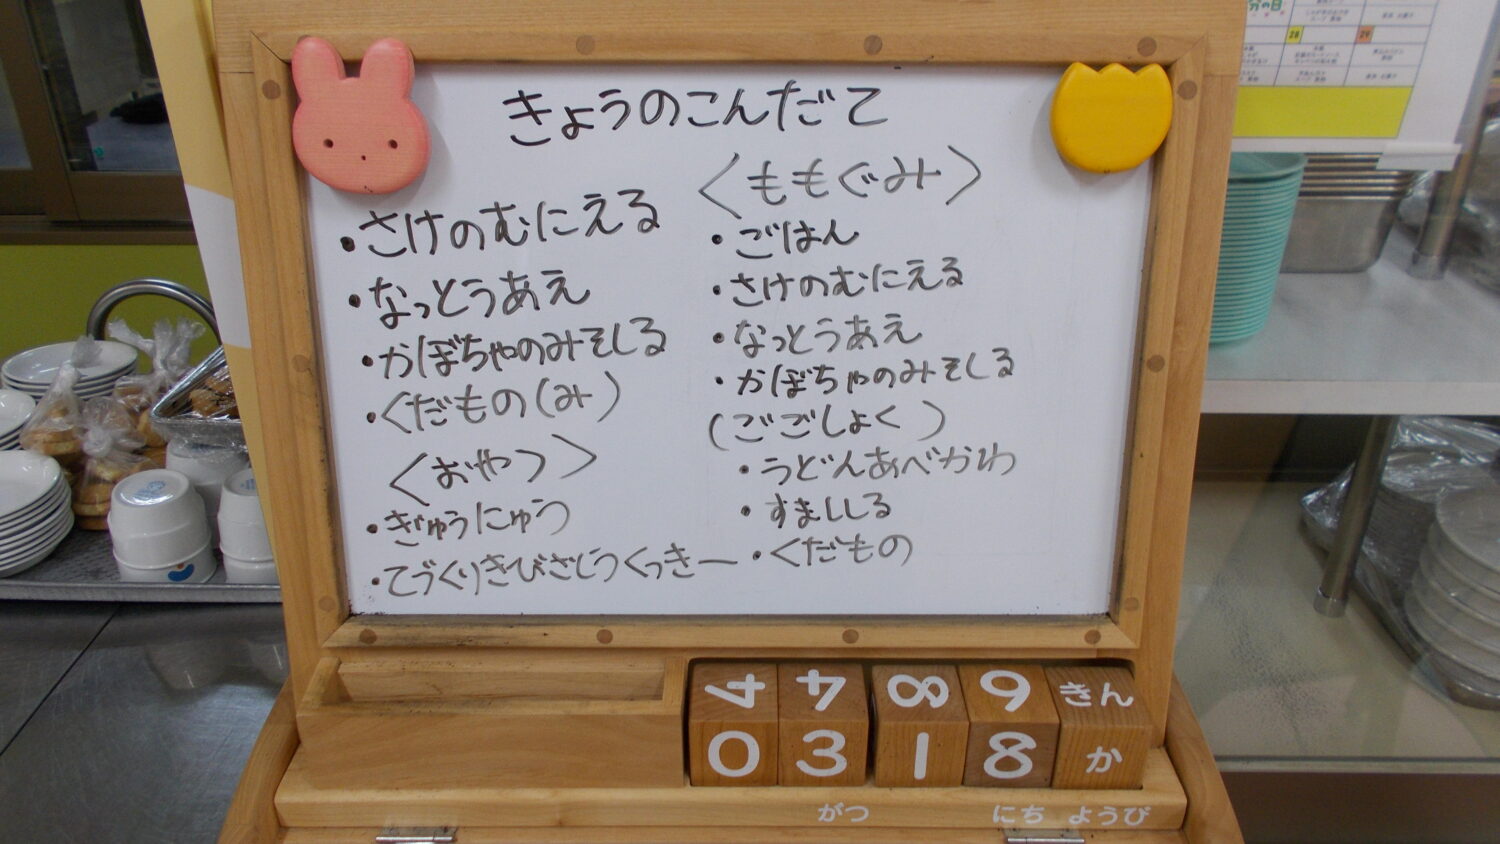 きょうのこんだて
・さけのむにえる
・なっとうあえ
・かぼちゃのみそしる
・くだもの(み)
〈おやつ〉
・ぎゅうにゅう
・てづくりきびざとうくっきー
〈ももぐみ〉
・ごはん
・さけのむにえる
・なっとうあえ
・かぼちゃのみそしる
(ごごしょく)
・うどんあべかわ
・すましじる
・くだもの
4 4 8 9 きん
0 3 1 8 か
がつ にち ようび
28 29